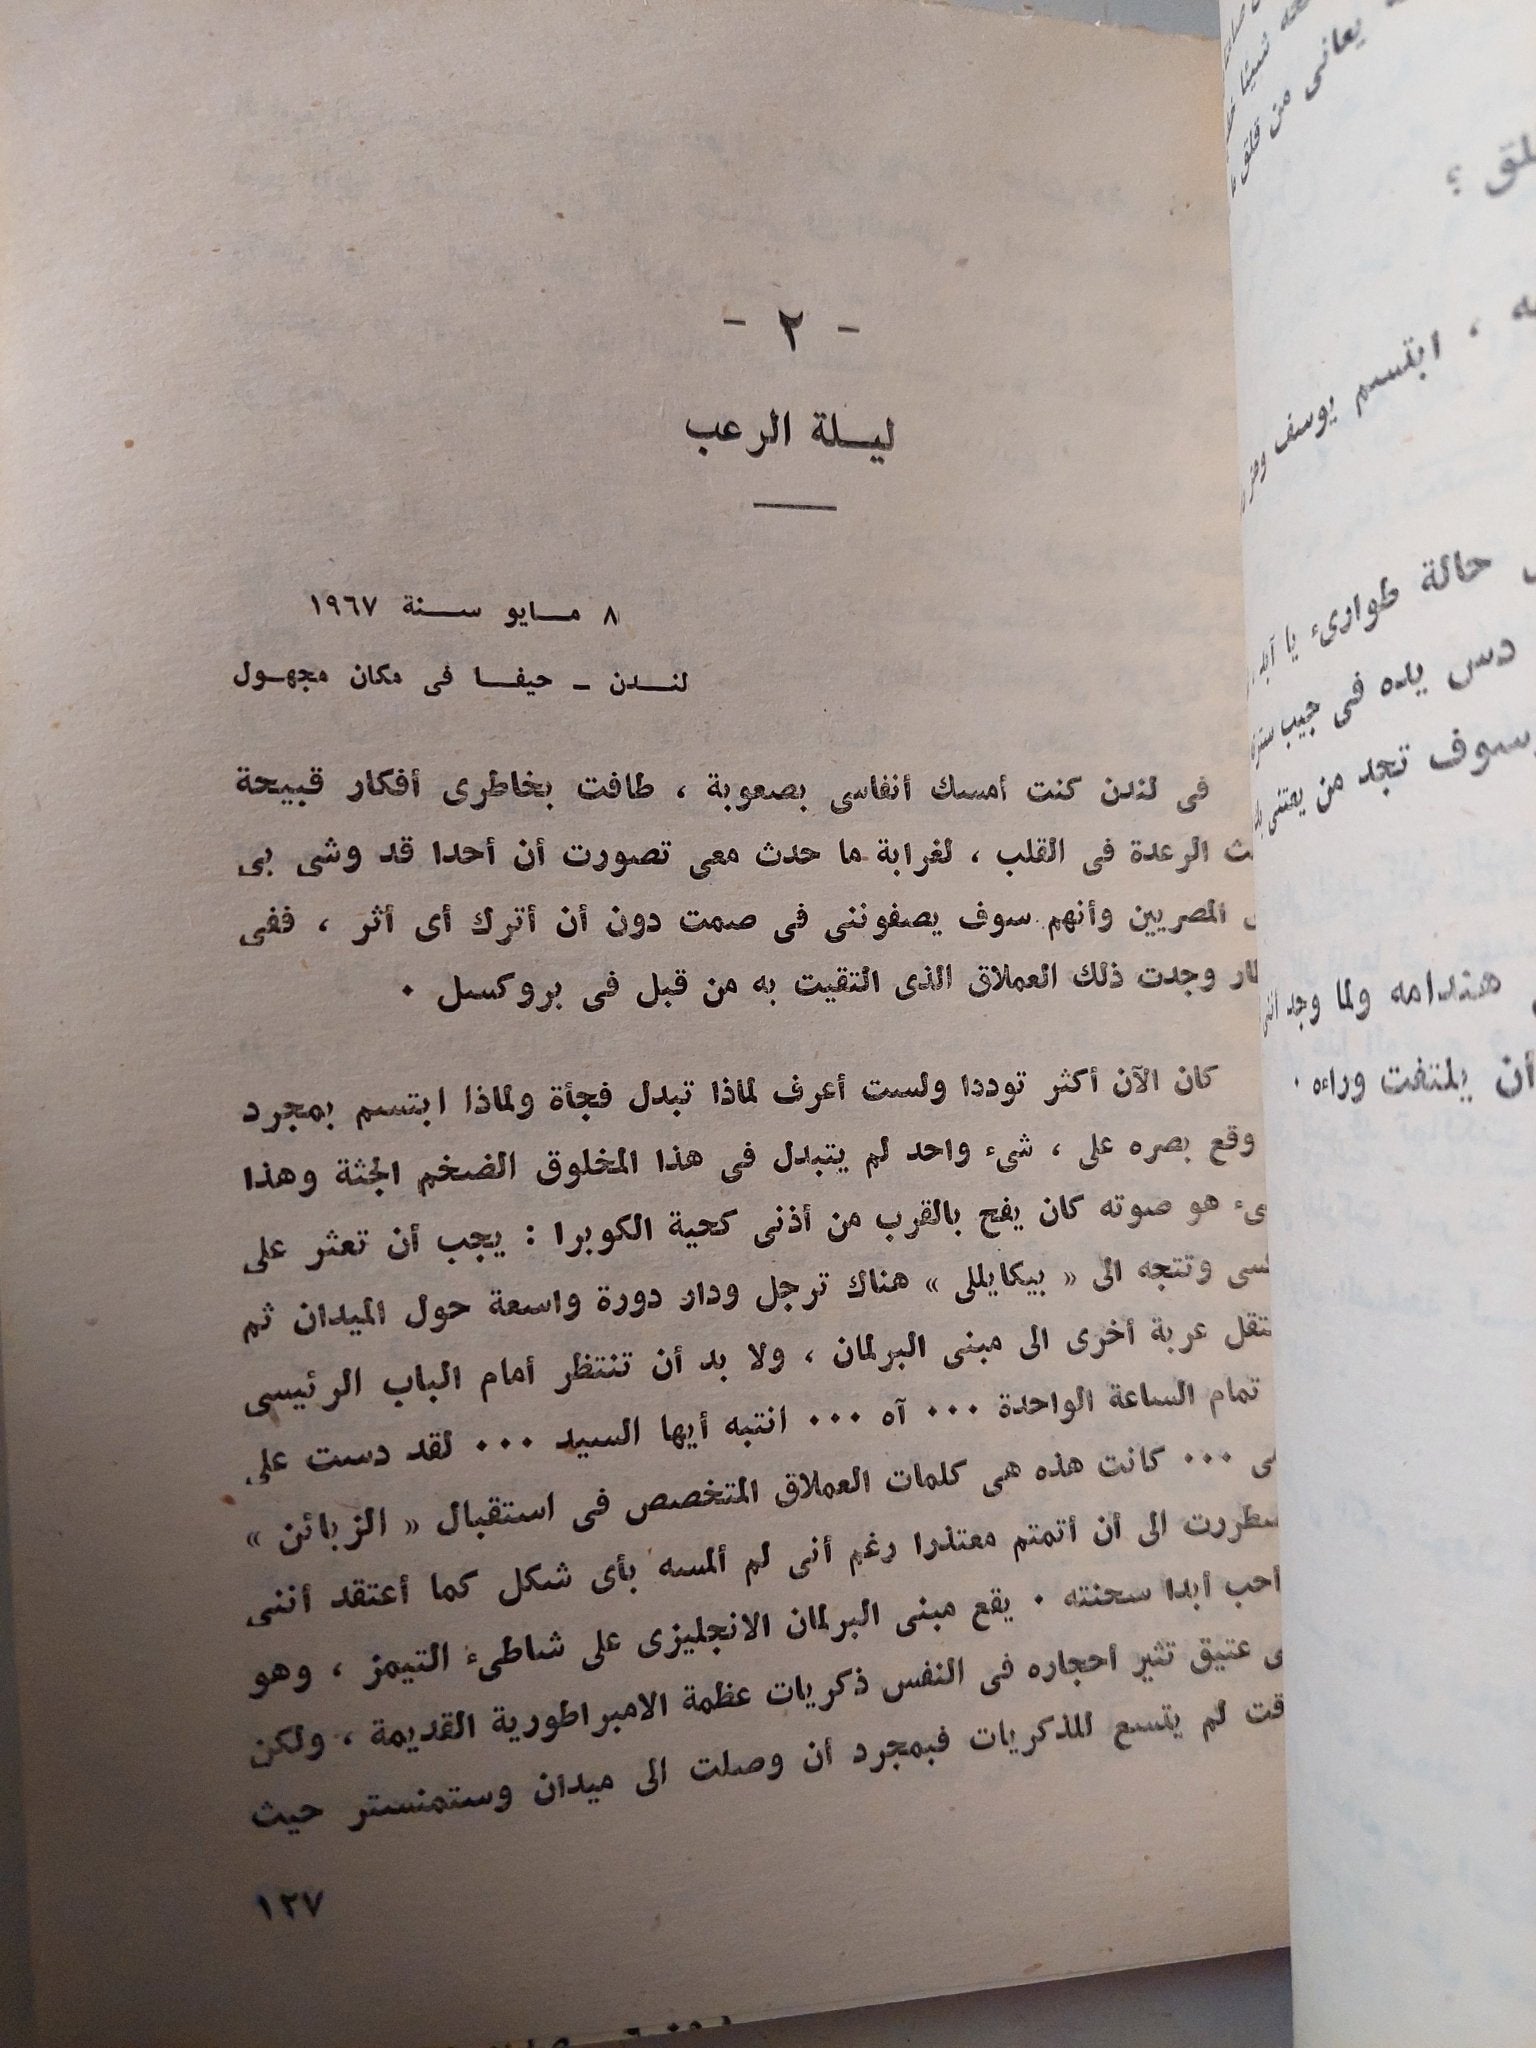 - ٢ -
ليـــلة الرعب
٨ مـــايو ســـنة ١٩٦٧
لنـــدن ـ حيفـــا فى مكان مجهـول
فى لندن كنت أمسك أنفاسى بصعوبة ، طافت بخاطرى أفكار قبيحة
الرعدة فى القلب ، لغرابة ما حدث معى تصورت أن أحدا قد وشى بى
المصريين وأنهم سوف يصفوننى فى صمت دون أن أترك أى أثر ، ففى
وجدت ذلك العملاق الذى التقيت به من قبل فى بروكسل ٠
كان الآن أكثر توددا ولست أعرف لماذا تبدل فجأة ولماذا ابتسم بمجرد
وقع بصره على ، شىء واحد لم يتبدل فى هذا المخلوق الضخم الجثة وهذا
هو صوته كان يفح بالقرب من أذنى كحية الكوبرا : يجب أن تعثر على
وتتجه الى « بيكايللى » هناك ترجل ودار دورة واسعة حول الميدان ثم
عربة أخرى الى مبنى البرلمان ، ولا بد أن تنتظر أمام الباب الرئيسى
تمام الساعة الواحدة ٠٠٠ آه ٠٠٠ انتبه أيها السيد ٠٠٠ لقد دست على
٠٠٠ كانت هذه هى كلمات العملاق المتخصص فى استقبال « الزبائن »
الى أن أتمتم معتذرا رغم أنى لم ألمسه بأى شكل كما أعتقد أننى
أحب أبدا سحنته ٠ يقع مبنى البرلمان الانجليزى على شاطىء التيمز ، وهو
عتيق تثير احجاره فى النفس ذكريات عظمة الامبراطورية القديمة ، ولكن
لم يتسع للذكريات فبمجرد أن وصلت الى ميدان وستمنستر حيث
١٢٧
يعانى من قلق
، ابتسم يوسف
حالة طوارىء يا
دس يده فى جيب
وسوف تجد من يعتنى
هندامه ولما وجد
أن يلتفت وراءه ٠